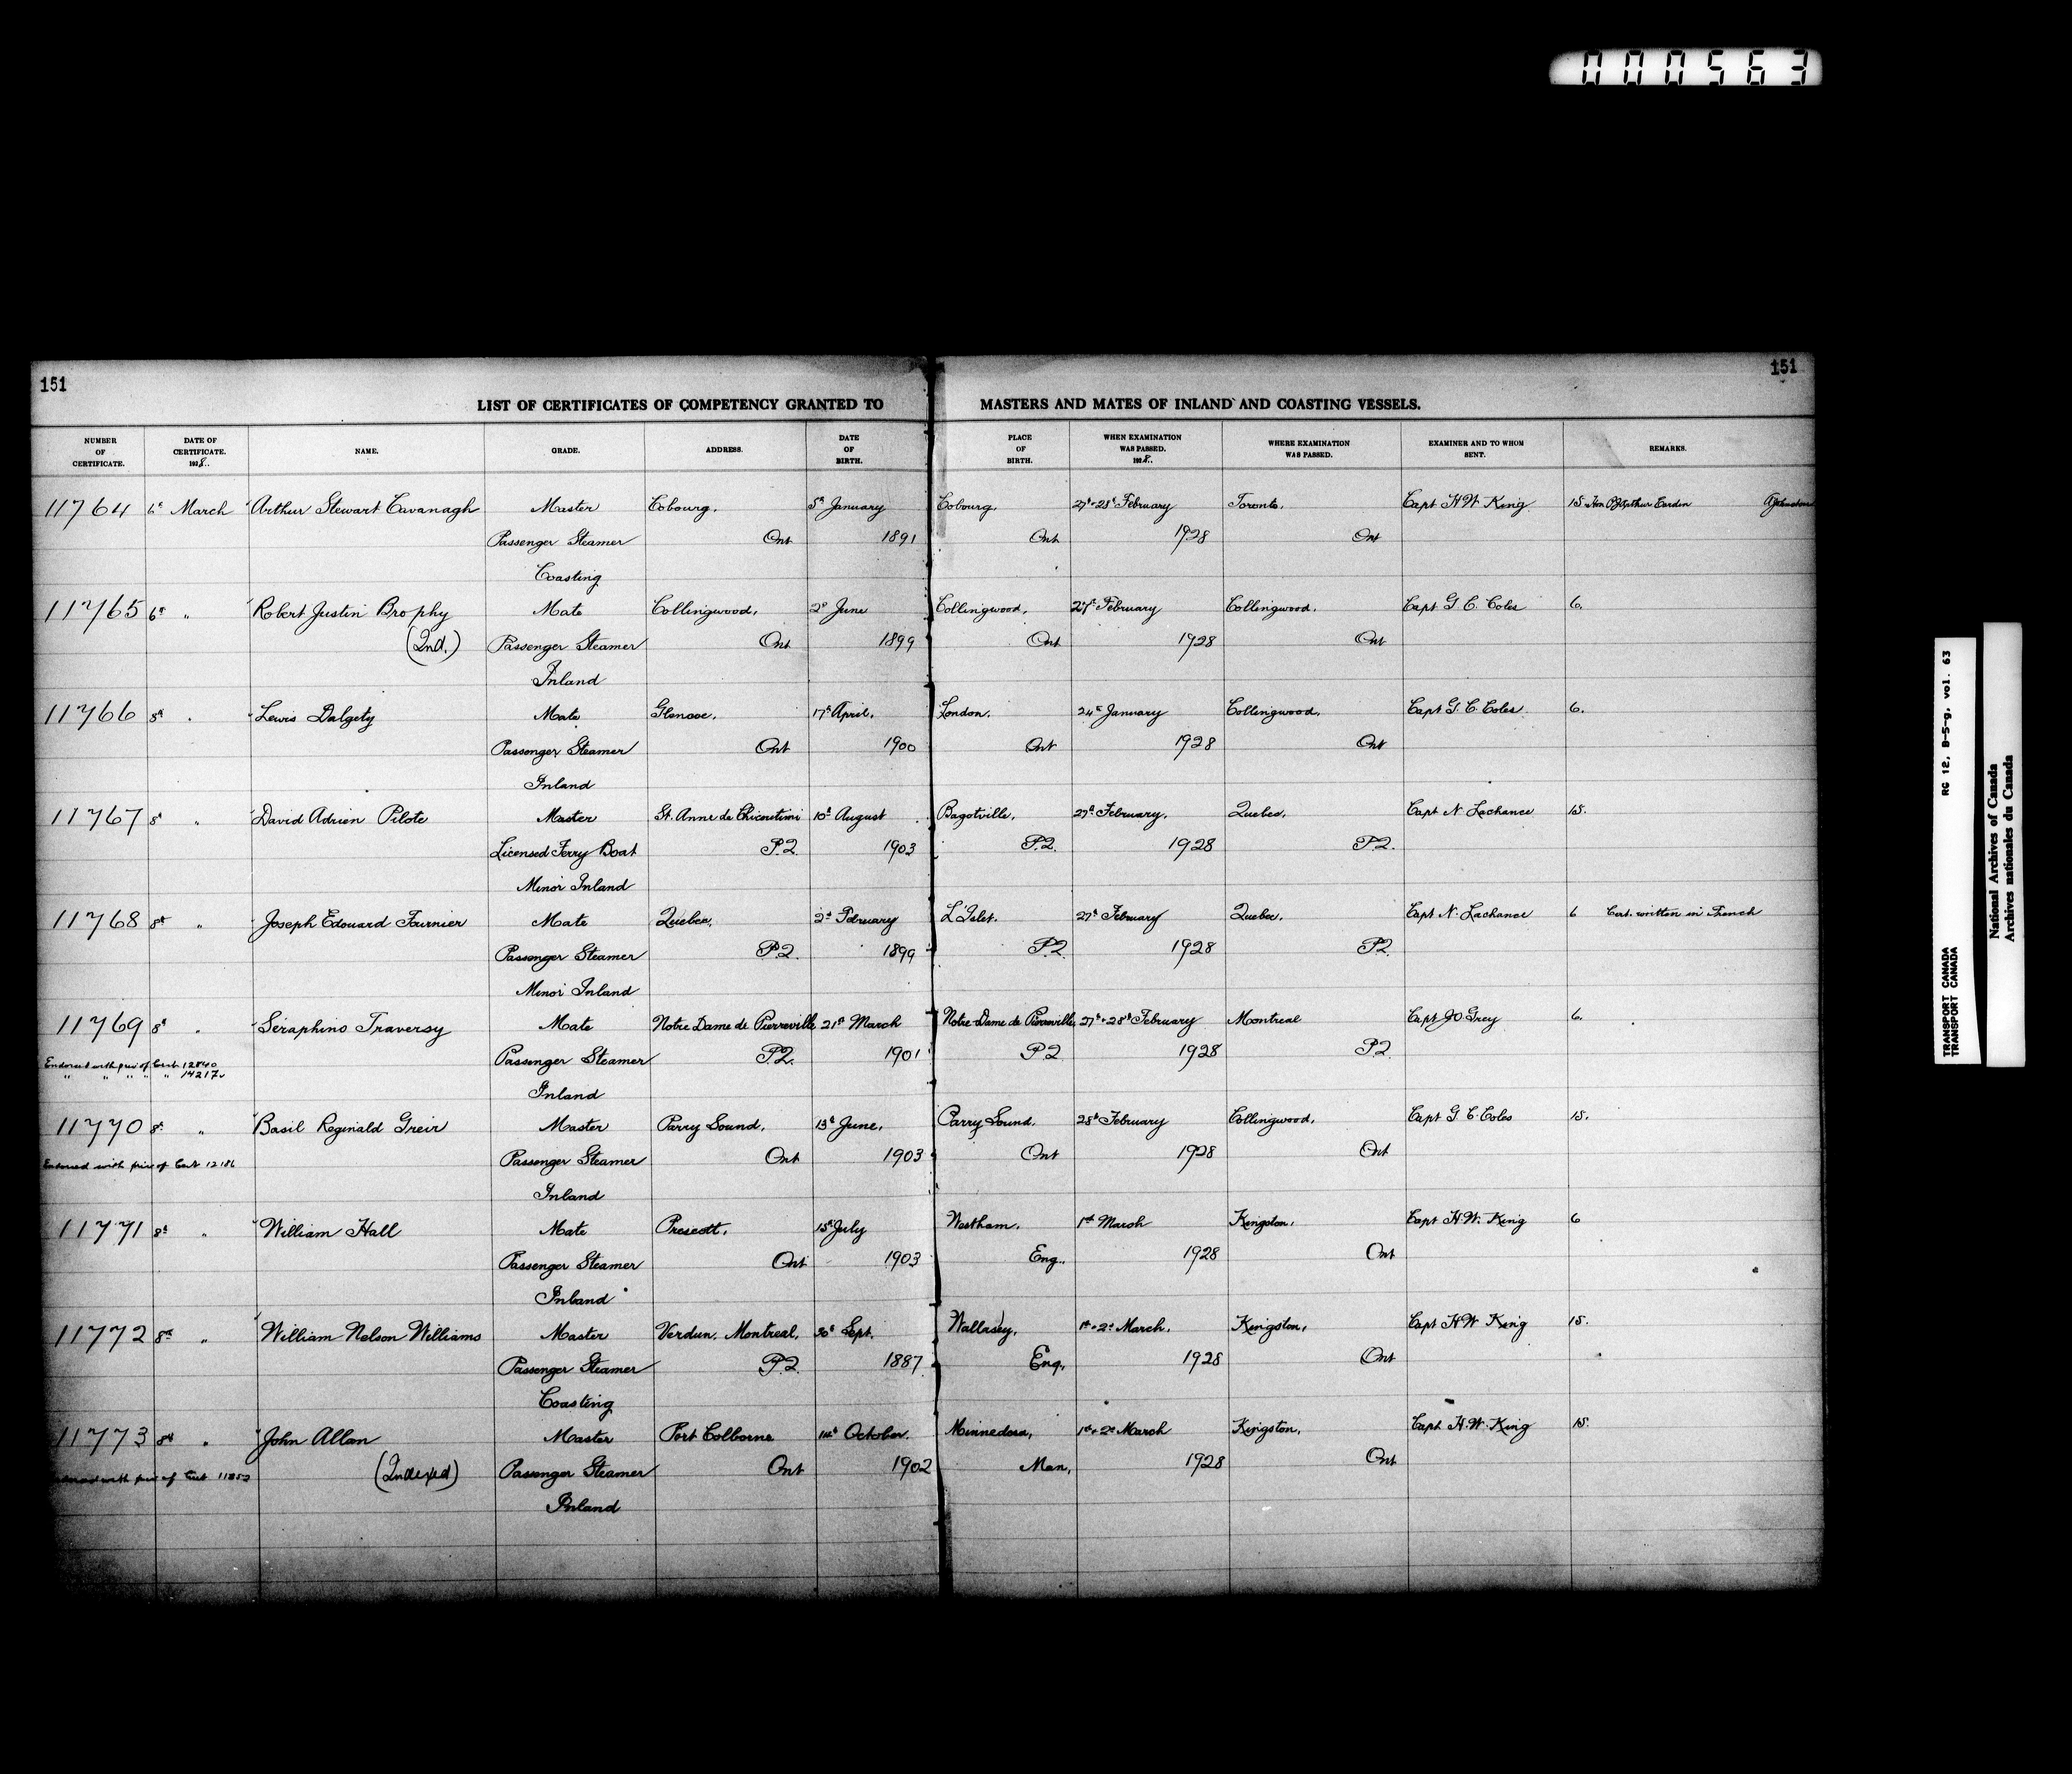 000563
151
151
LIST OF CERTIFICATES OF COMPETENCY GRANTED TO MASTERS AND MATES OF INLAND AND COASTING VESSELS.
NUMBER OF CERTIFICATE. DATE OF CERTIFICATE. 1928.. NAME. GRADE. ADDRESS. DATE OF BIRTH. PLACE OF BIRTH. WHEN EXAMINATION WAS PASSED. 1928.. WHERE EXAMINATION WAS PASSED. EXAMINER AND TO WHOM SENT. REMARKS.
11764 6th March Arthur Stewart Cavanagh Master Cobourg. 5th January Cobourg. 27th + 28th February Toronto. Capt H W King. 15
Passenger Steamer Ont 1891 Ont 1928 Ont
Coasting
11765 6th " Robert Justin Brophy Mate Collingwood. 2nd June Collingwood. 27th February Collingwood. Capt G C. Coles 6.
(Ind.) Passenger Steamer Ont 1899 Ont 1928 Ont
Inland
11766 8th " Lewis Dalgety Mate 17th April. London. 24th January Collingwood. Capt G. C. Coles 6.
Passenger Steamer Ont 1900 Ont 1928 Ont
Inland
11767 8th " David Adrien Pilote Master St. Anne de Chicoutimi 10th August Bagotville. 27th February. Quebec. Capt N Lachance 15.
Licensed Ferry Boat P.Q. 1903 P.Q. 1928 P.Q.
Minor Inland
11768 8th " Joseph Edouard Fournier Mate Quebec. 2nd February L'Islet. 27th February Quebec. Capt N. Lachance 6 Cert. written in French
Passenger Steamer P.Q. 1899 P.Q. 1928 P.Q.
Minor Inland
11769 8th " Seraphino Traversy Mate Notre Dame de Pierreville 21st March Notre Dame de Pierreville 27th + 28th February Montreal Capt J O Grey 6.
Endorsed with priv of Cert. 12840
" " " " " 14217
Passenger Steamer P.Q. 1901 P.Q. 1928 P.Q.
Inland
11770 8th " Basil Reginald Greir Master Parry Sound. 13th June. Parry Sound. 28th February Collingwood. Capt G. C. Coles 15.
Endorsed with priv of Cert 12186 Passenger Steamer Ont 1903 Ont 1928 Ont
Inland
11771 8th " William Hall Mate Prescott. 15th July Westham. 1st March Kingston. Capt H. W. King 6
Passenger Steamer Ont 1903 Eng. 1928 Ont
Inland
11772 8th " William Nelson Williams Master Verdun. Montreal. 30th Sept. Wallasey. 1st + 2nd March. Kingston. Capt H W King 15.
Passenger Steamer P.Q. 1887 Eng. 1928 Ont
Coasting
11773 8th " John Allan Master Port Colborne 14th October. Minnedosa, 1st + 2nd March Kingston, Capt H. W. King 15.
with priv of Cert 11852 (Indexed) Passenger Steamer Ont 1902 Man. 1928 Ont
Inland
RG 12, B-5-g, vol. 63
TRANSPORT CANADA
TRANSPORT CANADA
National Archives of Canada
Archives nationales du Canada